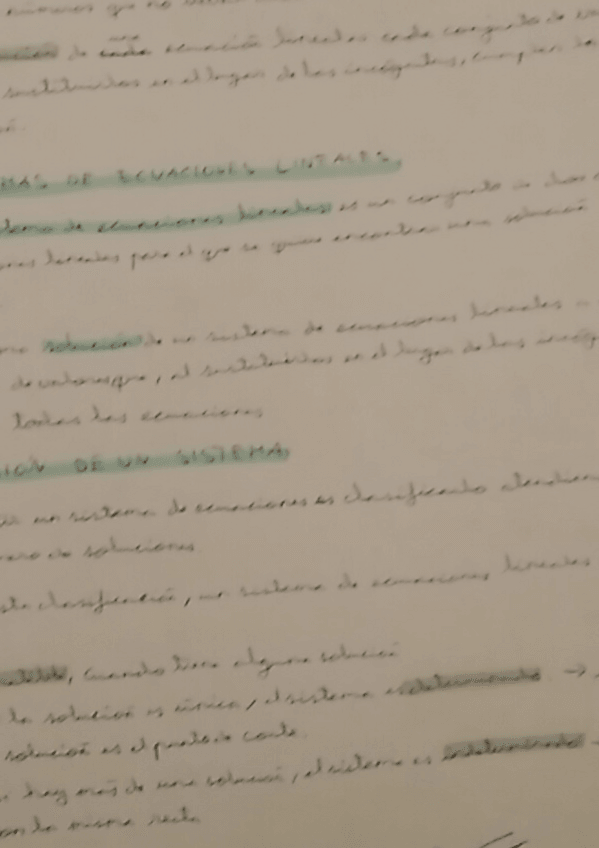 números que no
de cada ecuación lineal es cada conjunto de
sustituirlos en el lugar de las incógnitas, cumplen la
MAS DE ECUACIONES LINEALES
tema de ecuaciones lineales es un conjunto de dos
ones lineales para el que se quiere encontrar una solución
solución de un sistema de ecuaciones lineales
de valores que, al sustituirlos en el lugar de las incóg
todas las ecuaciones
CIÓN DE UN SISTEMA
un sistema de ecuaciones es clasificarlo atendien
mero de soluciones
sta clasificación, un sistema de ecuaciones lineales
, cuando tiene alguna solución
la solución es única, el sistema es determinado →
solución es el punto de corte.
hay más de una solución, el sistema es indeterminado
son la misma recta